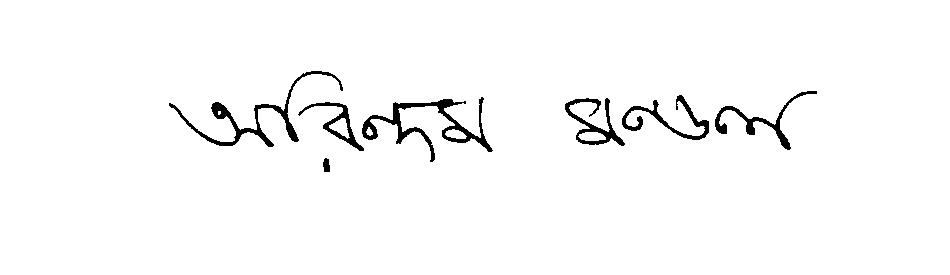 অরিন্দম মন্ডল